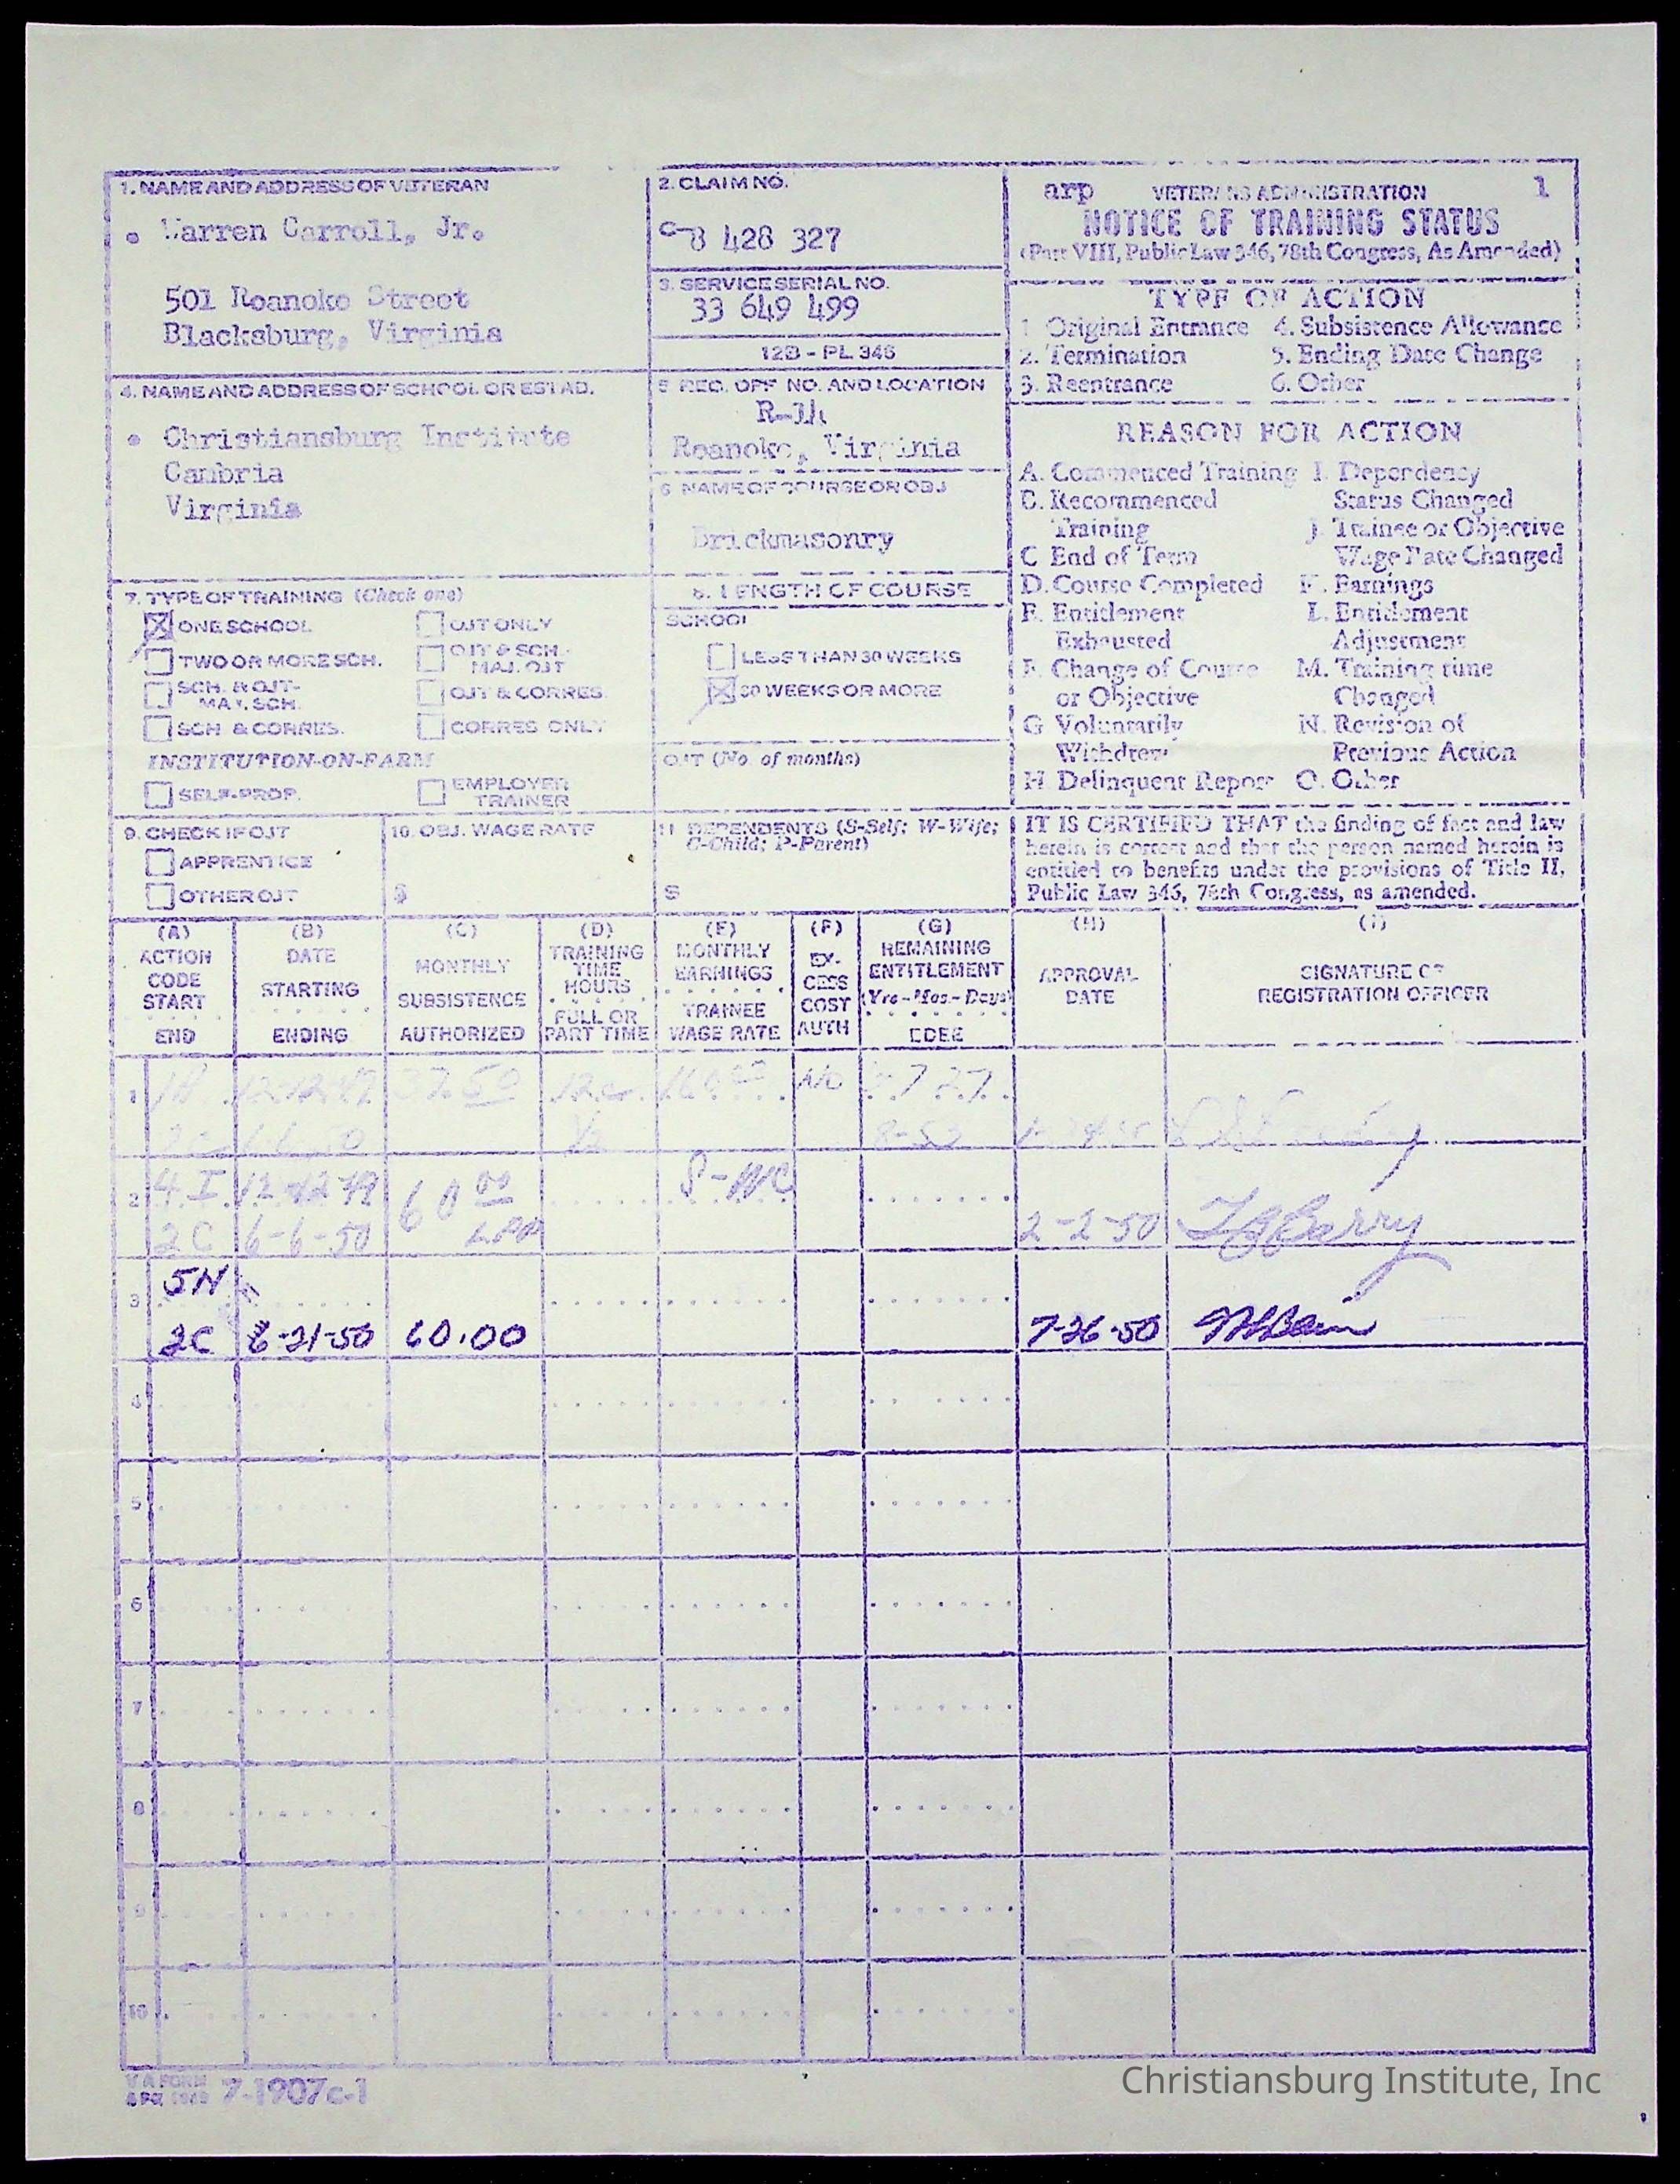 1. NAME AND ADDRESS OF VETERAN
Warren Carroll, Jr.
501 Roanoke Street
Blacksburg, Virginia
2. CLAIM NO.
C-8 428 327
3. SERVICE SERIAL NO.
33 649 499
12B - PL 346
arp VETERANS ADMINISTRATION 1
NOTICE OF TRAINING STATUS
(Part VIII, Public Law 346, 78th Congress, As Amended)
TYPE OF ACTION
1. Original Entrance 4. Subsistence Allowance
2. Termination 5. Ending Date Change
3. Reentrance 6. Other
4. NAME AND ADDRESS OF SCHOOL OR ESTAB.
Christiansburg Institute
Cambria
Virginia
5. REG. OFF. NO. AND LOCATION
R-14
Roanoke, Virginia
6. NAME OF COURSE OR OBJ.
Brickmasonry
REASON FOR ACTION
A. Commenced Training I. Dependency
B. Recommenced Status Changed
Training J. Trainee or Objective
C. End of Term Wage Rate Changed
D. Course Completed K. Earnings
E. Entitlement L. Entitlement
Exhausted Adjustment
F. Change of Course M. Training time
or Objective Changed
G. Voluntarily N. Revision of
Withdrew Previous Action
H. Delinquent Report O. Other
7. TYPE OF TRAINING (Check one)
ONE SCHOOL OJT ONLY
TWO OR MORE SCH. OJT & SCH.-
MAJ. OJT
SCH. & OJT-
MAJ. SCH. OJT & CORRES.
SCH. & CORRES. CORRES. ONLY
INSTITUTION-ON-FARM
SELF-PROP. EMPLOYER
TRAINER
8. LENGTH OF COURSE
SCHOOL
LESS THAN 30 WEEKS
30 WEEKS OR MORE
OJT (No. of months)
9. CHECK IF OJT
APPRENTICE
OTHER OJT
10. OBJ. WAGE RATE
$
11. DEPENDENTS (S-Self; W-Wife;
C-Child; P-Parent)
S
IT IS CERTIFIED THAT the finding of fact and law
herein is correct and that the person named herein is
entitled to benefits under the provisions of Title II,
Public Law 346, 78th Congress, as amended.
(A)
ACTION
CODE
START
END
(B)
DATE
STARTING
ENDING
(C)
MONTHLY
SUBSISTENCE
AUTHORIZED
(D)
TRAINING
TIME
HOURS
FULL OR
PART TIME
(E)
MONTHLY
EARNINGS
TRAINEE
WAGE RATE
(F)
EX-
CESS
COST
AUTH
(G)
REMAINING
ENTITLEMENT
(Yrs-Mos-Days)
EDEE
(H)
APPROVAL
DATE
(I)
SIGNATURE OF
REGISTRATION OFFICER
1 1A 12-12-49 37.50 NO
2 4.I 12-12-49 60 00
2C 6-6-50 2-2-50
3 5N
2C 6-21-50 60.00 7-26-50
4
5
6
7
8
9
10
VA FORM
APR 1949 7-1907c-1
Christiansburg Institute, Inc